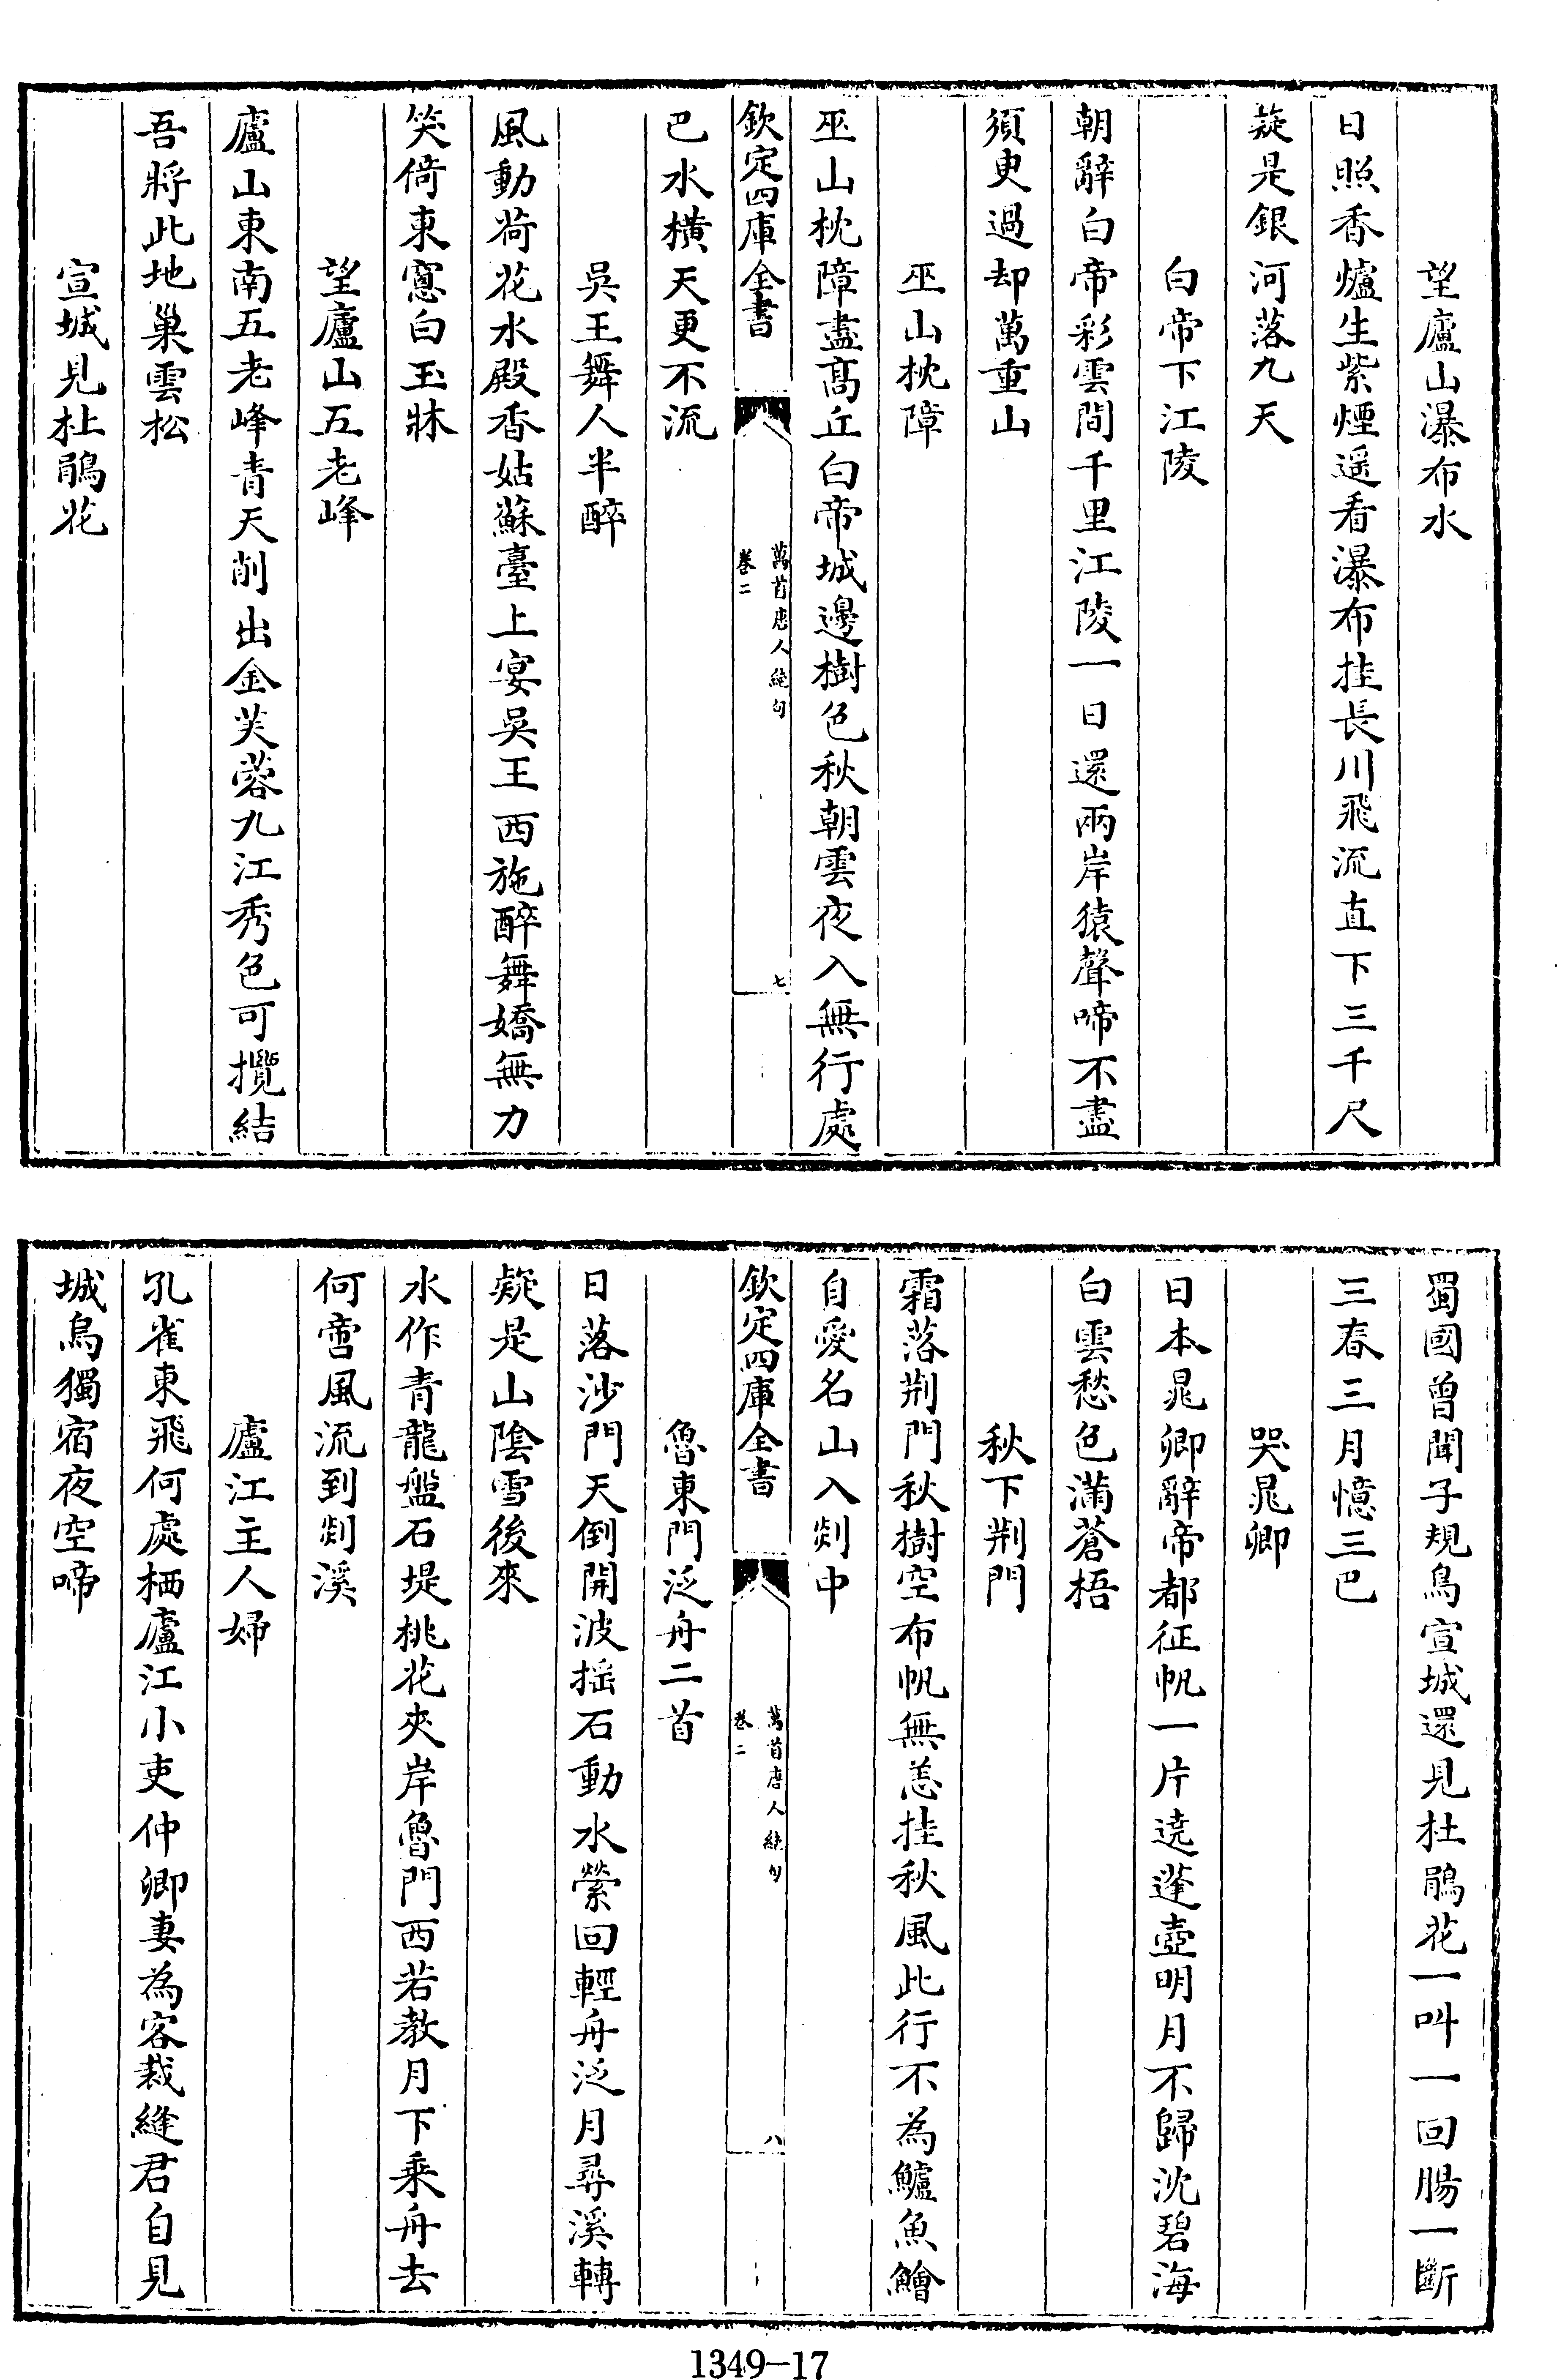 望廬山瀑布水
日照香爐生紫煙遥看瀑布挂長川飛流直下三千尺
疑是銀河落九天
白帝下江陵
朝辭白帝彩雲間千里江陵一日還兩岸猿聲啼不盡
須臾過却萬重山
巫山枕障
巫山枕障畫髙丘白帝城邊樹色秋朝雲夜入無行處
欽定四庫全書
萬首唐人絶句
卷二
七
巴水橫天更不流
吳王舞人半醉
風動荷花水殿香姑蘇臺上宴吳王西施醉舞嬌無力
笑倚東窓白玉牀
望廬山五老峰
廬山東南五老峰青天削出金芙蓉九江秀色可攬結
吾將此地巢雲松
宣城見杜鵑花
蜀國曾聞子規鳥宣城還見杜鵑花一叫一回腸一斷
三春三月憶三巴
哭晁卿
日本晁卿辭帝都征帆一片遶蓬壺明月不歸沈碧海
白雲愁色滿蒼梧
秋下荆門
霜落荆門秋樹空布帆無恙挂秋風此行不為鱸魚鱠
自愛名山入剡中
欽定四庫全書
萬首唐人絶句
卷二
八
魯東門泛舟二首
日落沙門天倒開波揺石動水縈回輕舟泛月尋溪轉
疑是山隂雪後來
水作青龍盤石堤桃花夾岸魯門西若教月下乘舟去
何啻風流到剡溪
廬江主人婦
孔雀東飛何處栖廬江小吏仲卿妻為客裁縫君自見
城烏獨宿夜空啼
1349-17